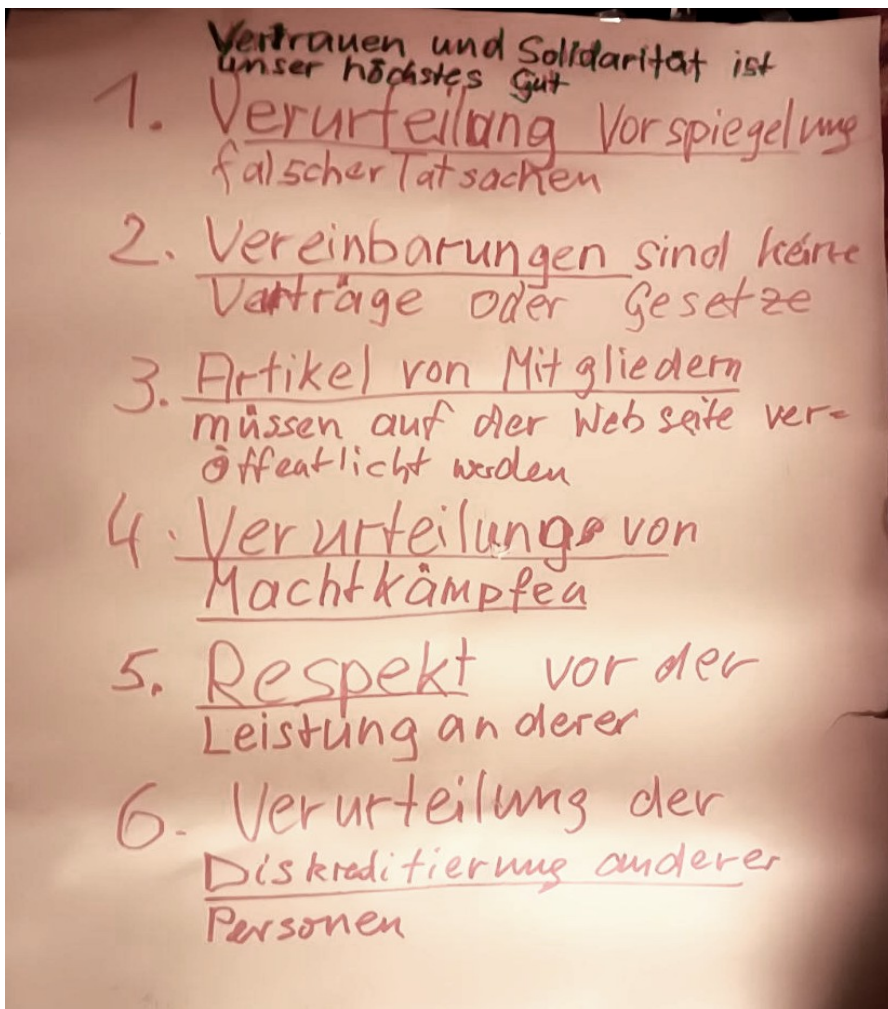 Vertrauen und Solidarität ist
unser höchstes Gut
1. Verurteilung Vorspiegelung
falscher Tatsachen
2. Vereinbarungen sind keine
Verträge oder Gesetze
3. Artikel von Mitgliedern
müssen auf der Webseite ver=
öffentlicht werden
4. Verurteilung von
Machtkämpfen
5. Respekt vor der
Leistung anderer
6. Verurteilung der
Diskreditierung anderer
Personen